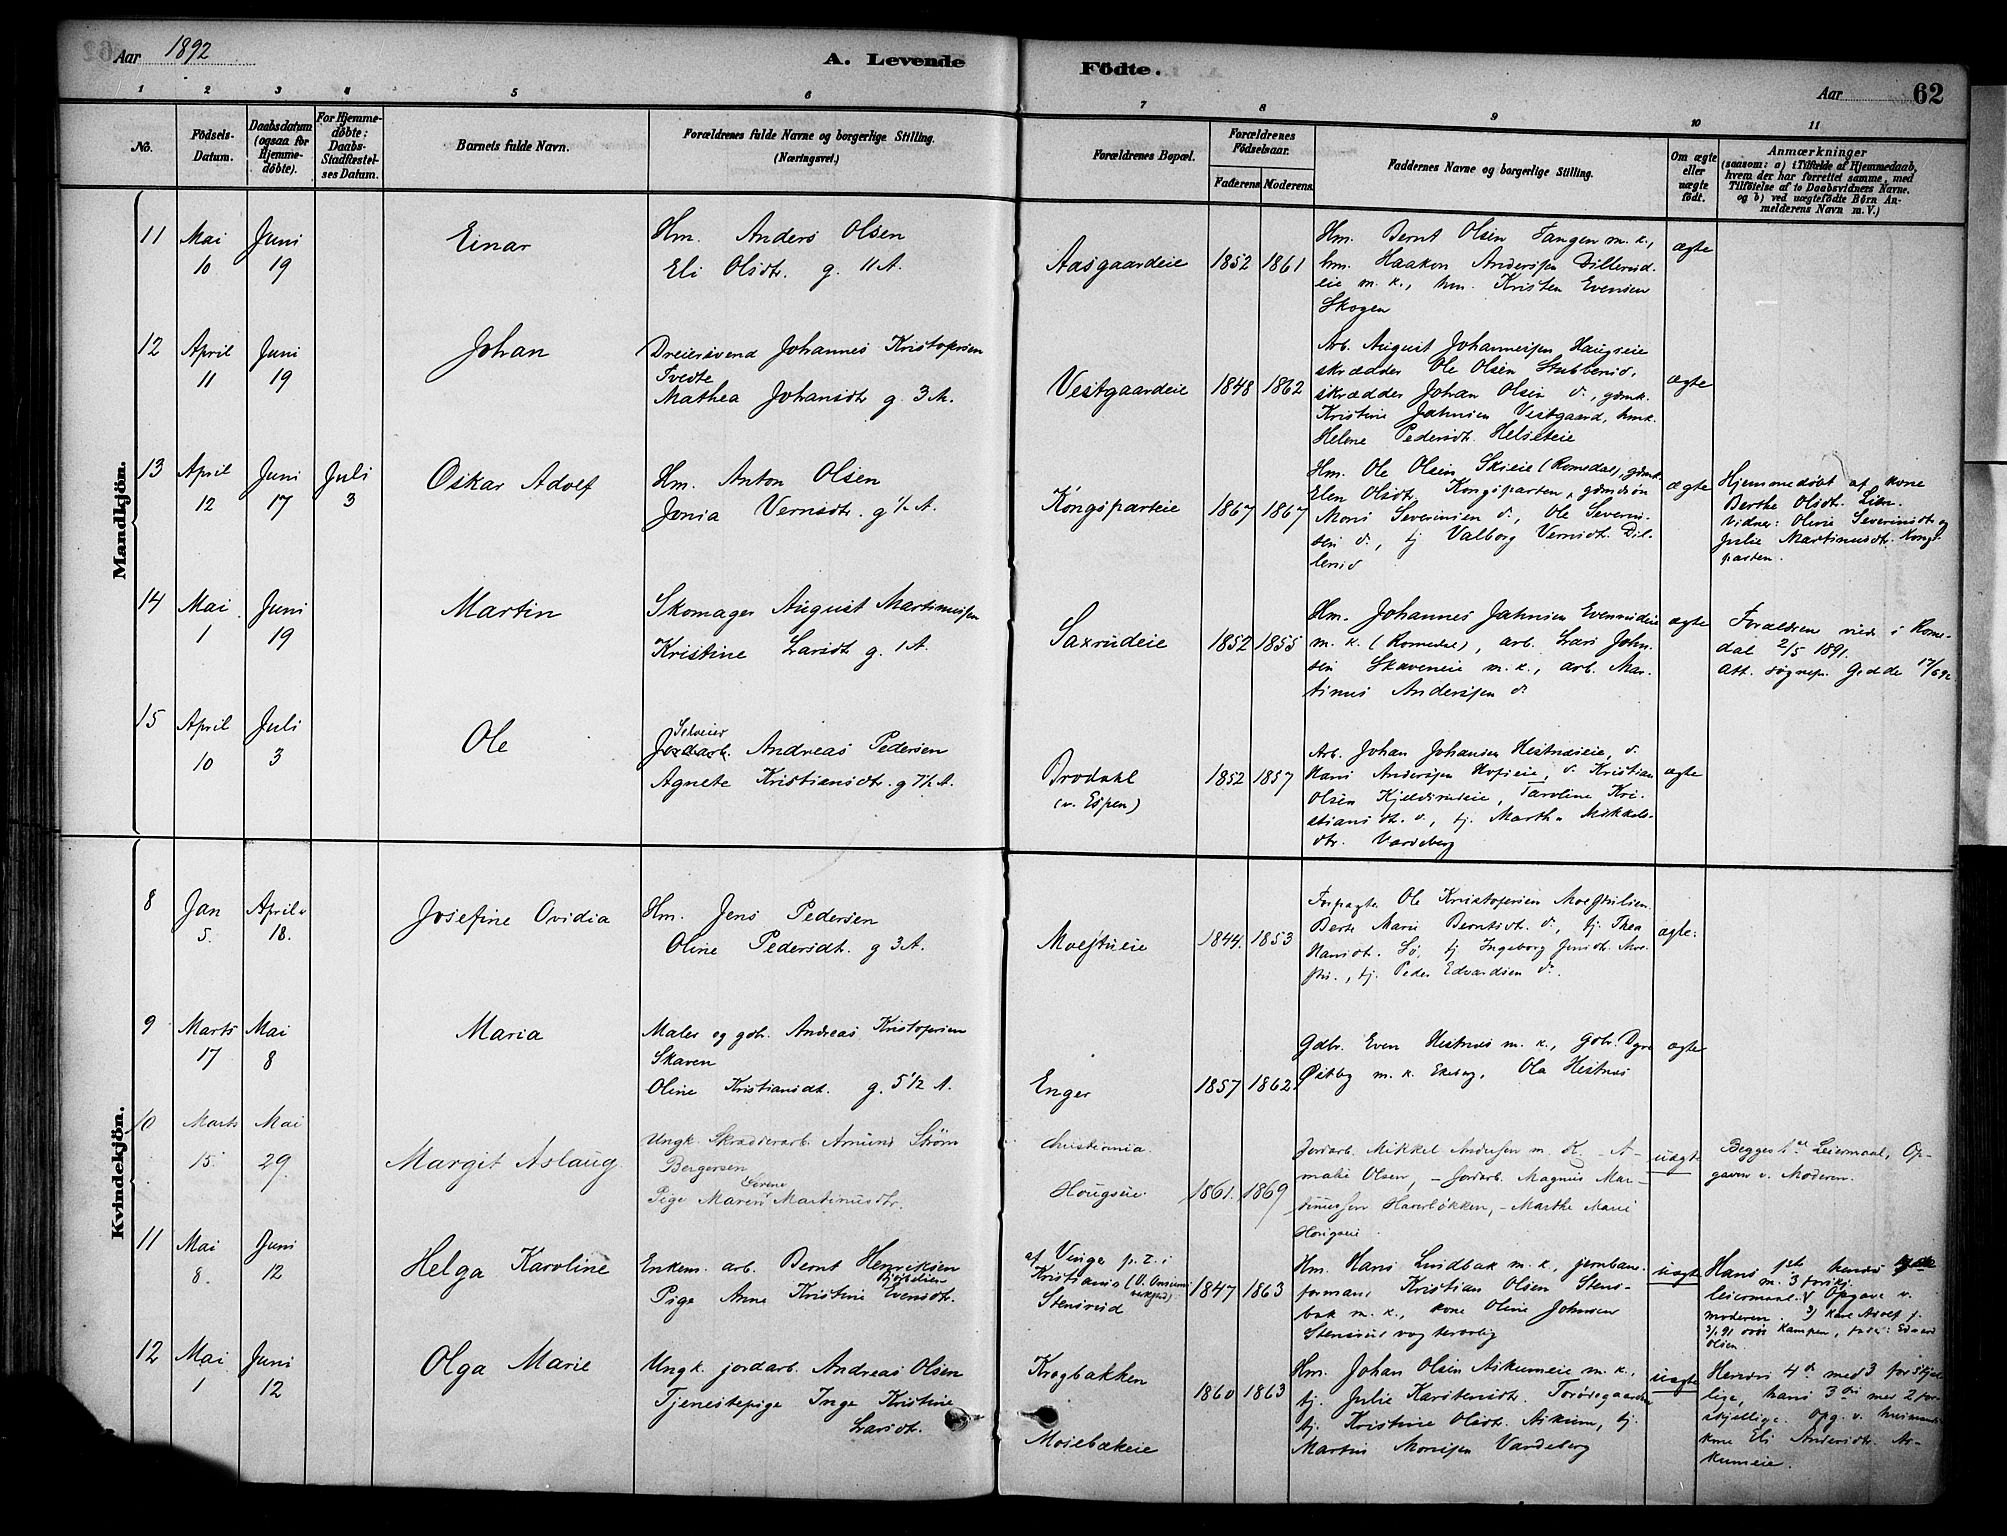 Aar 1892
A. Levende
Födte.
Aar
62
1 2 3 4 5 6 7 8 9 10 11
No.
Födsels-Datum.
Daabsdatum (ogsaa for Hjemmedöbte).
For Hjemmedöbte: Daabs-Stadfæstelses Datum.
Barnets fulde Navn.
Forældrenes fulde Navne og borgerlige Stilling. (Næringsvei.)
Forældrenes Bopæl.
Forældrenes Födselsaar.
Faderens. Moderens.
Faddernes Navne og borgerlige Stilling.
Om ægte eller uægte födt.
Anmærkninger
(saasom: a) i Tilfælde af Hjemmedaab, hvem der har forrettet samme, med Tilföielse af to Daabsvidners Navne. og b) ved uægtefödte Börn Anmelderens Navn m. V.)
Mandkjön.
11
Mai 10
Juni 19
Einar
Hm. Anders Olsen
Eli Olsdtr. g. 11 A.
Aasgaardeie
1852 1861
Hm. Bernt Olsen Tangen m. k.,
hm. Haaken Andersen Dillerud-
eie m. k., hm. Kristen Evensen
Skogen
ægte
12
April 11
Juni 19
Johan
Dreiersvend Johannes Kristofersen
Tvedte
Mathea Johansdtr g. 3 A.
Vestgaardeie
1848 1862
Arb. August Johannessen Haugseie
skrædder Ole Olsen Stubberud,
skrædder Johan Olsen d., gdmk.
Kristine Jahnsen Vestgaard, hmk.
Helene Pedersdtr. Helseteie
ægte
13
April 12
Juni 17
Juli 3
Oskar Adolf
Hm. Anton Olsen
Jonia Vernsdtr. g 1/2 A.
Kongsparteie
1867 1867
Hm. Ole Olsen Skieie (Romedal), gdmk.
Elen Olsdtr. Kongsparten, gdmdsøn
Mons Severinsen d., Ole Severin-
sen d., tj Valborg Vernsdtr. Dil-
lerud
ægte
Hjemmedøbt af kone
Berthe Olsdtr. Lien.
Vidner: Oline Severinsdtr og
Julie Martinusdtr. Kongs-
parten.
14
Mai 1
Juni 19
Martin
Skomager August Martinussen
Kristine Larsdtr g. 1 A.
Saxrudeie
1852 1855
Hm. Johannes Jahnsen Evenrudeie
m. k. (Romedal), arb. Lars John-
sen Skaveneie m. k., arb. Mar-
tinus Andersen d.
ægte
Forældrene viede i Rome-
dal 2/5 1891.
att. sognepr. Gedde 17/6 92
15
April 10
Juli 3
Ole
Selveier
Jordarb. Andreas Pedersen
Agnete Kristiansdtr. g 7 1/2 A.
Brodahl
(v. Espen)
1852 1857
Arb. Johan Johansen Hestnæseie, d.
Hans Andersen Hofseie, d. Kristian
Olsen Kjeldsrudeie, Karoline Kri-
stiansdtr. d., tj. Martha Mikkels-
dtr. Vardeberg
ægte
Kvindekjön.
8
Jan 5.
April 18.
Josefine Ovidia
Hm. Jens Pedersen
Oline Pedersdtr. g 3 A.
Moestueie
1844. 1853
Forpagter Ole Kristofersen
Berte Marie Berntsdtr. d., tj. Thea
Hansdtr. tj Ingeborg Jensdtr. Moe-
stu., tj. Peder Edvardsen d.
ægte.
9
Marts 17
Mai 8
Maria
Maler og gdbr. Andreas Kristofersen
Skaven
Oline Kristiansdtr. g. 5 1/2 A.
Enger
1857 1862.
Gdbr. Even Hestnæs m. k., Gdbr. Dyre
Østby m. k. Ekeberg, Ola Hestnæs
ægte
10
Marts 15.
Mai 29.
Margit Aslaug
Ungk. Skrædderarb. Amund Strøm
Bergersen
Pige Maren Lovene Martinusdtr.
Christiania
Hougseie.
1861. 1869
Jordarb. Mikkel Andersen m. K. - A-
malie Olsen, - Jordarb. Magnus Mar-
tinussen Haverløkken, - Marthe Marie
Hougseie
uægte
Begges 1ste Leiermaal, Op-
gaven v. Moderen.
11
Mai 8.
Juni 12
Helga Karoline
Enkem. arb. Bernt Henriksen
Pige Anne Kristine Evensdtr.
af Vinger p. t. i
Kristiania
Stensrud
1847 1863
Hm. Hans Lindbak m. k., jernban-
formann Kristian Olsen Stens-
bak m. k., kone Oline Johnsen
Stensrud
uægte
Hans 1ste hendes
m. 3 forskj.
leiermaal. Opgave v.
moderen. Kare Adolf f.
Kampen, fader: Edvard
Olsen.
12
Mai 1
Juni 12
Olga Marie
Ungk. jordarb. Andreas Olsen
Tjenestepige Inge Kristine
Larsdtr.
Krogbakken
Mosebækeie
1860 1863
Hm. Johan Olsen Askumeie m. k.,
tj. Julie Karstensdtr. Torødegaarden
tj. Kristine Olsdtr. Askum, tj.
Martin Monsen Vardeberg
uægte
Hendes 4de med 3 forskjel-
lige, hans 3die med 2 for-
skjellige. Opg. v. husmands-
kone Eli Andersdtr. As-
kumeie.